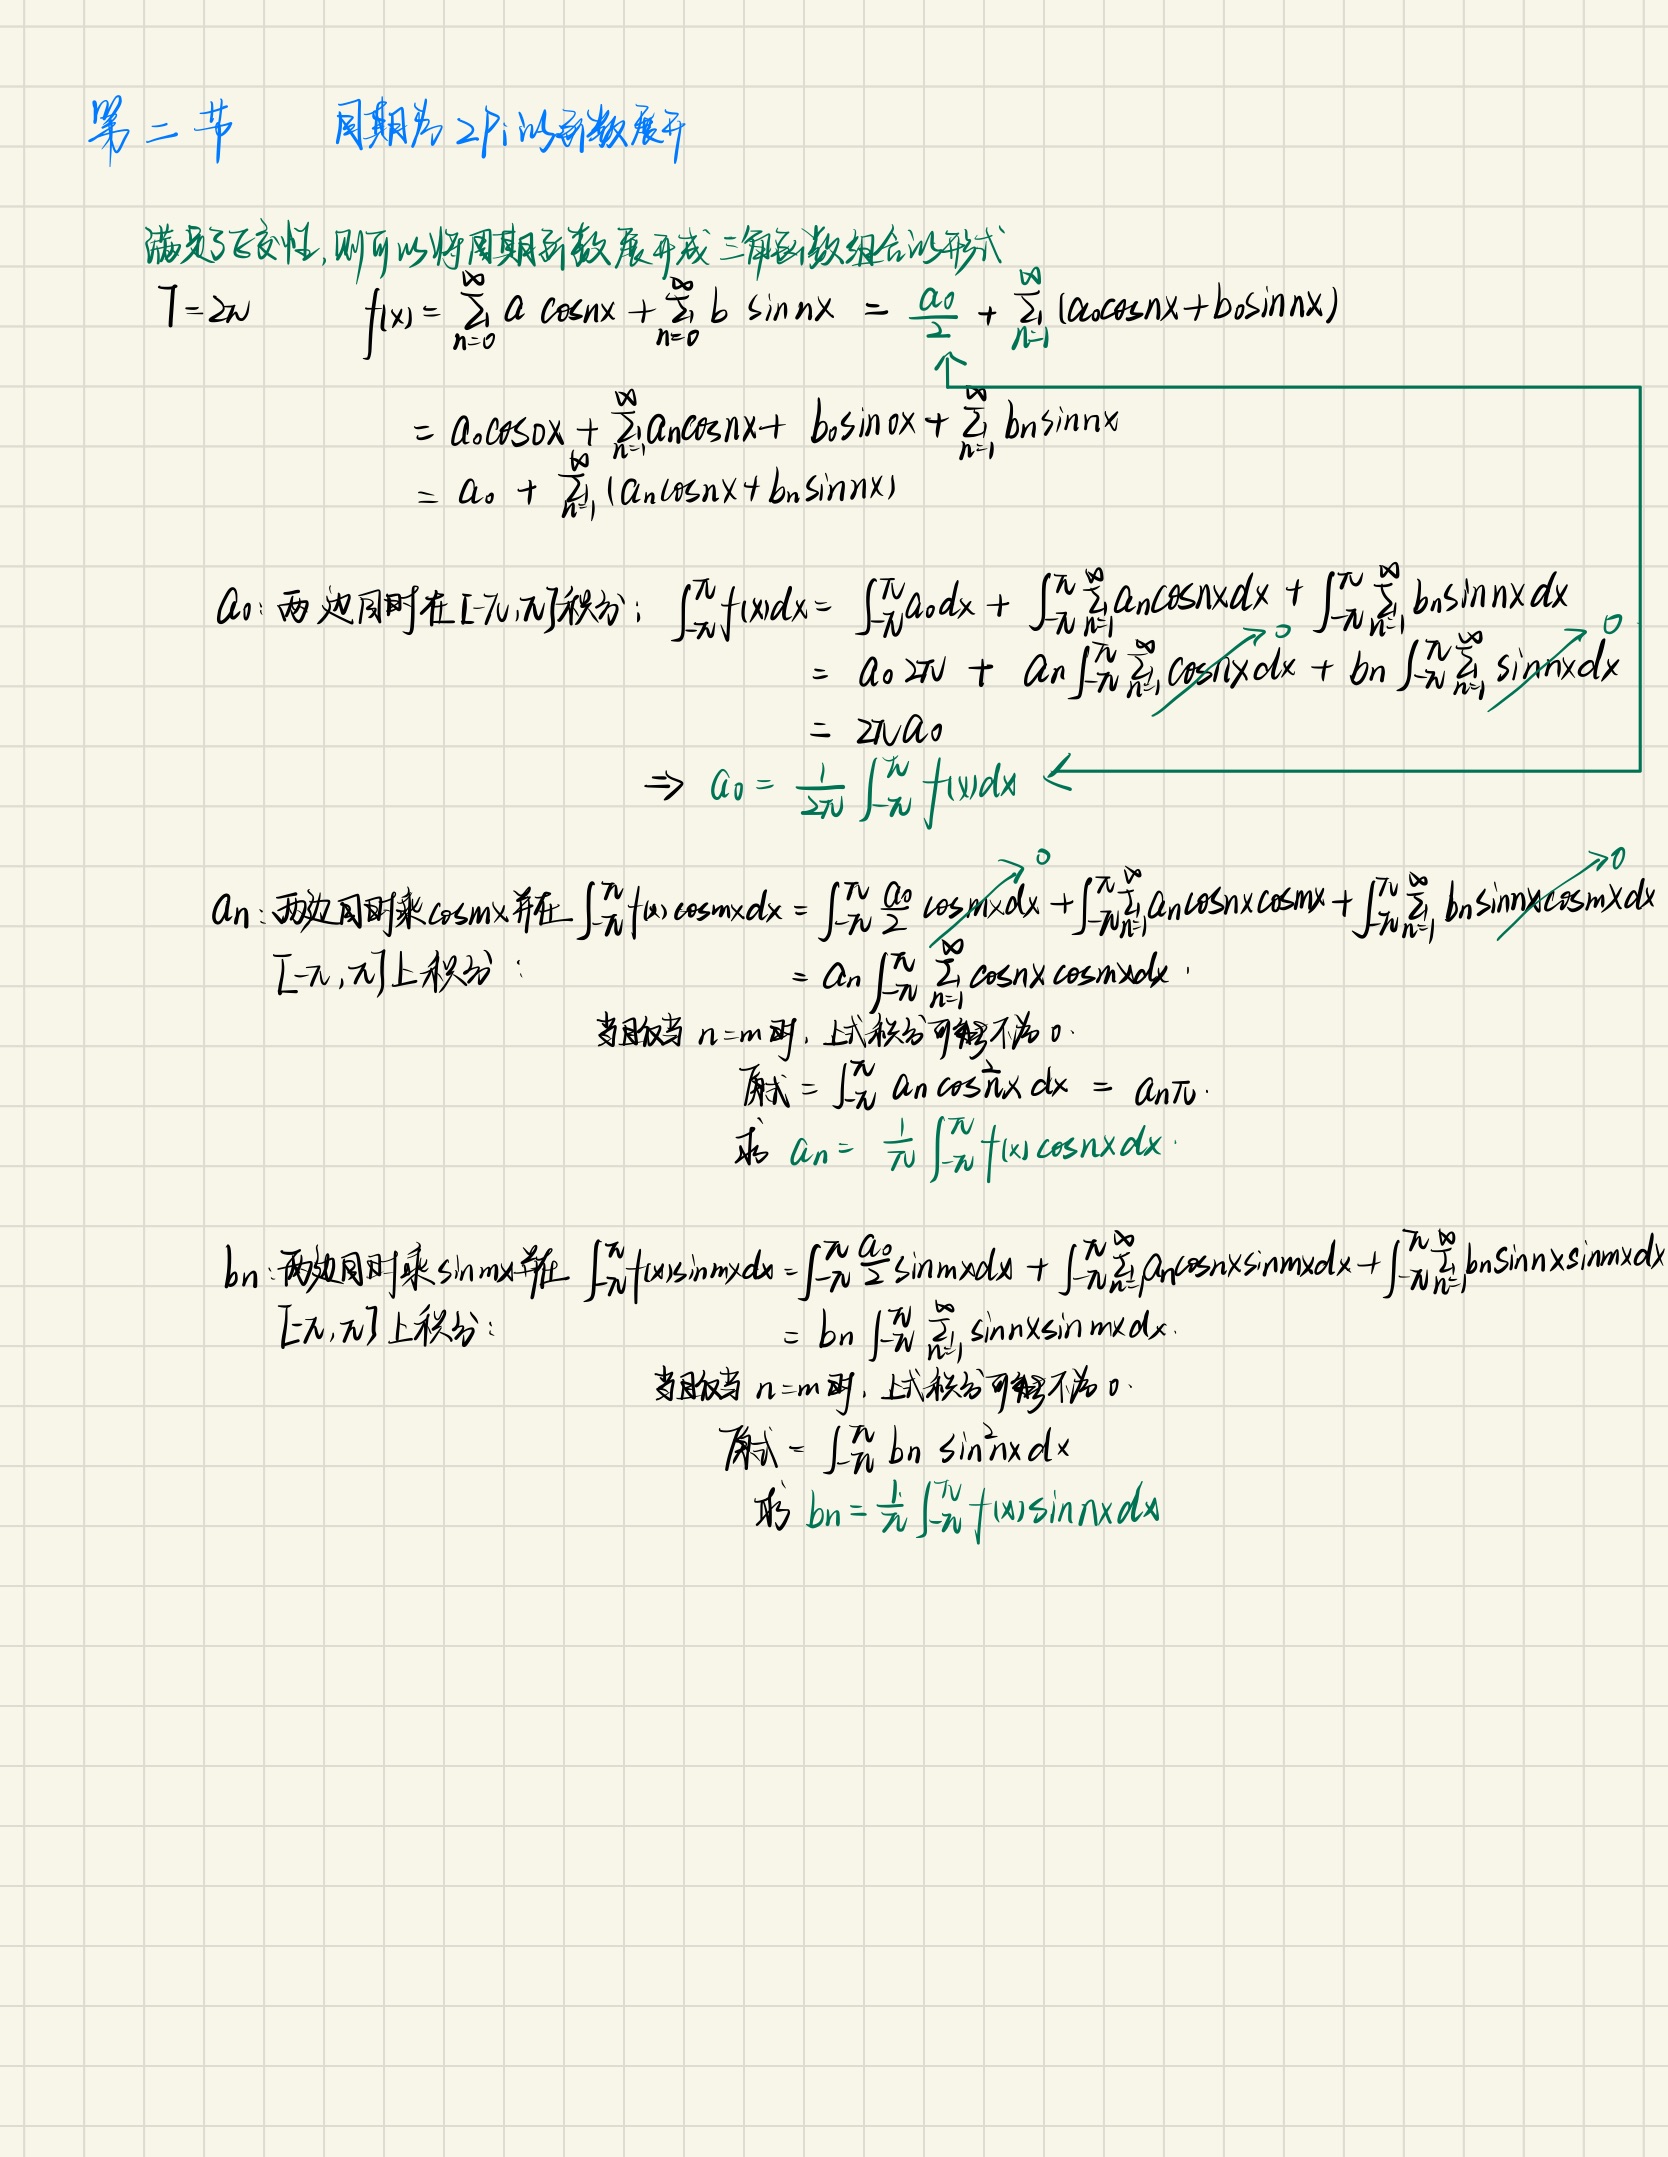 第二节 周期为2Pi的函数展开
满足了正交性,则可以将周期函数展开成三角函数组合的形式
T=2π f(x) = ∑_{n=0}^{∞} a cosnx + ∑_{n=0}^{∞} b sinnx = a₀/2 + ∑_{n=1}^{∞} (a₀cosnx+b₀sinnx)
= a₀cos0x + ∑_{n=1}^{∞} aₙcosnx + b₀sin0x + ∑_{n=1}^{∞} bₙsinnx
= a₀ + ∑_{n=1}^{∞} (aₙcosnx+bₙsinnx)
a₀: 两边同时在[-π,π]积分: ∫_{-π}^{π} f(x)dx = ∫_{-π}^{π} a₀dx + ∫_{-π}^{π} ∑_{n=1}^{∞} aₙcosnxdx + ∫_{-π}^{π} ∑_{n=1}^{∞} bₙsinnxdx
= a₀2π + aₙ∫_{-π}^{π} ∑_{n=1}^{∞} cosnxdx → 0 + bₙ∫_{-π}^{π} ∑_{n=1}^{∞} sinnxdx → 0
= 2πa₀
⇒ a₀ = 1/2π ∫_{-π}^{π} f(x)dx
aₙ: 两边同时乘cosmx并在 ∫_{-π}^{π} f(x)cosmxdx = ∫_{-π}^{π} a₀/2 cosmxdx → 0 + ∫_{-π}^{π} ∑_{n=1}^{∞} aₙcosnxcosmx + ∫_{-π}^{π} ∑_{n=1}^{∞} bₙsinnxcosmxdx → 0
[-π,π]上积分: = aₙ∫_{-π}^{π} ∑_{n=1}^{∞} cosnxcosmxdx.
当且仅当 n=m时, 上式积分可能不为0.
原式 = ∫_{-π}^{π} aₙcos²nxdx = aₙπ.
求 aₙ = 1/π ∫_{-π}^{π} f(x)cosnxdx.
bₙ: 两边同时乘sinmx并在 ∫_{-π}^{π} f(x)sinmxdx = ∫_{-π}^{π} a₀/2 sinmxdx + ∫_{-π}^{π} ∑_{n=1}^{∞} aₙcosnxsinmxdx + ∫_{-π}^{π} ∑_{n=1}^{∞} bₙsinnxsinmxdx
[-π,π]上积分: = bₙ∫_{-π}^{π} ∑_{n=1}^{∞} sinnxsinmxdx.
当且仅当 n=m时, 上式积分可能不为0.
原式 = ∫_{-π}^{π} bₙ sin²nxdx
bₙ = 1/π ∫_{-π}^{π} f(x)sinnxdx